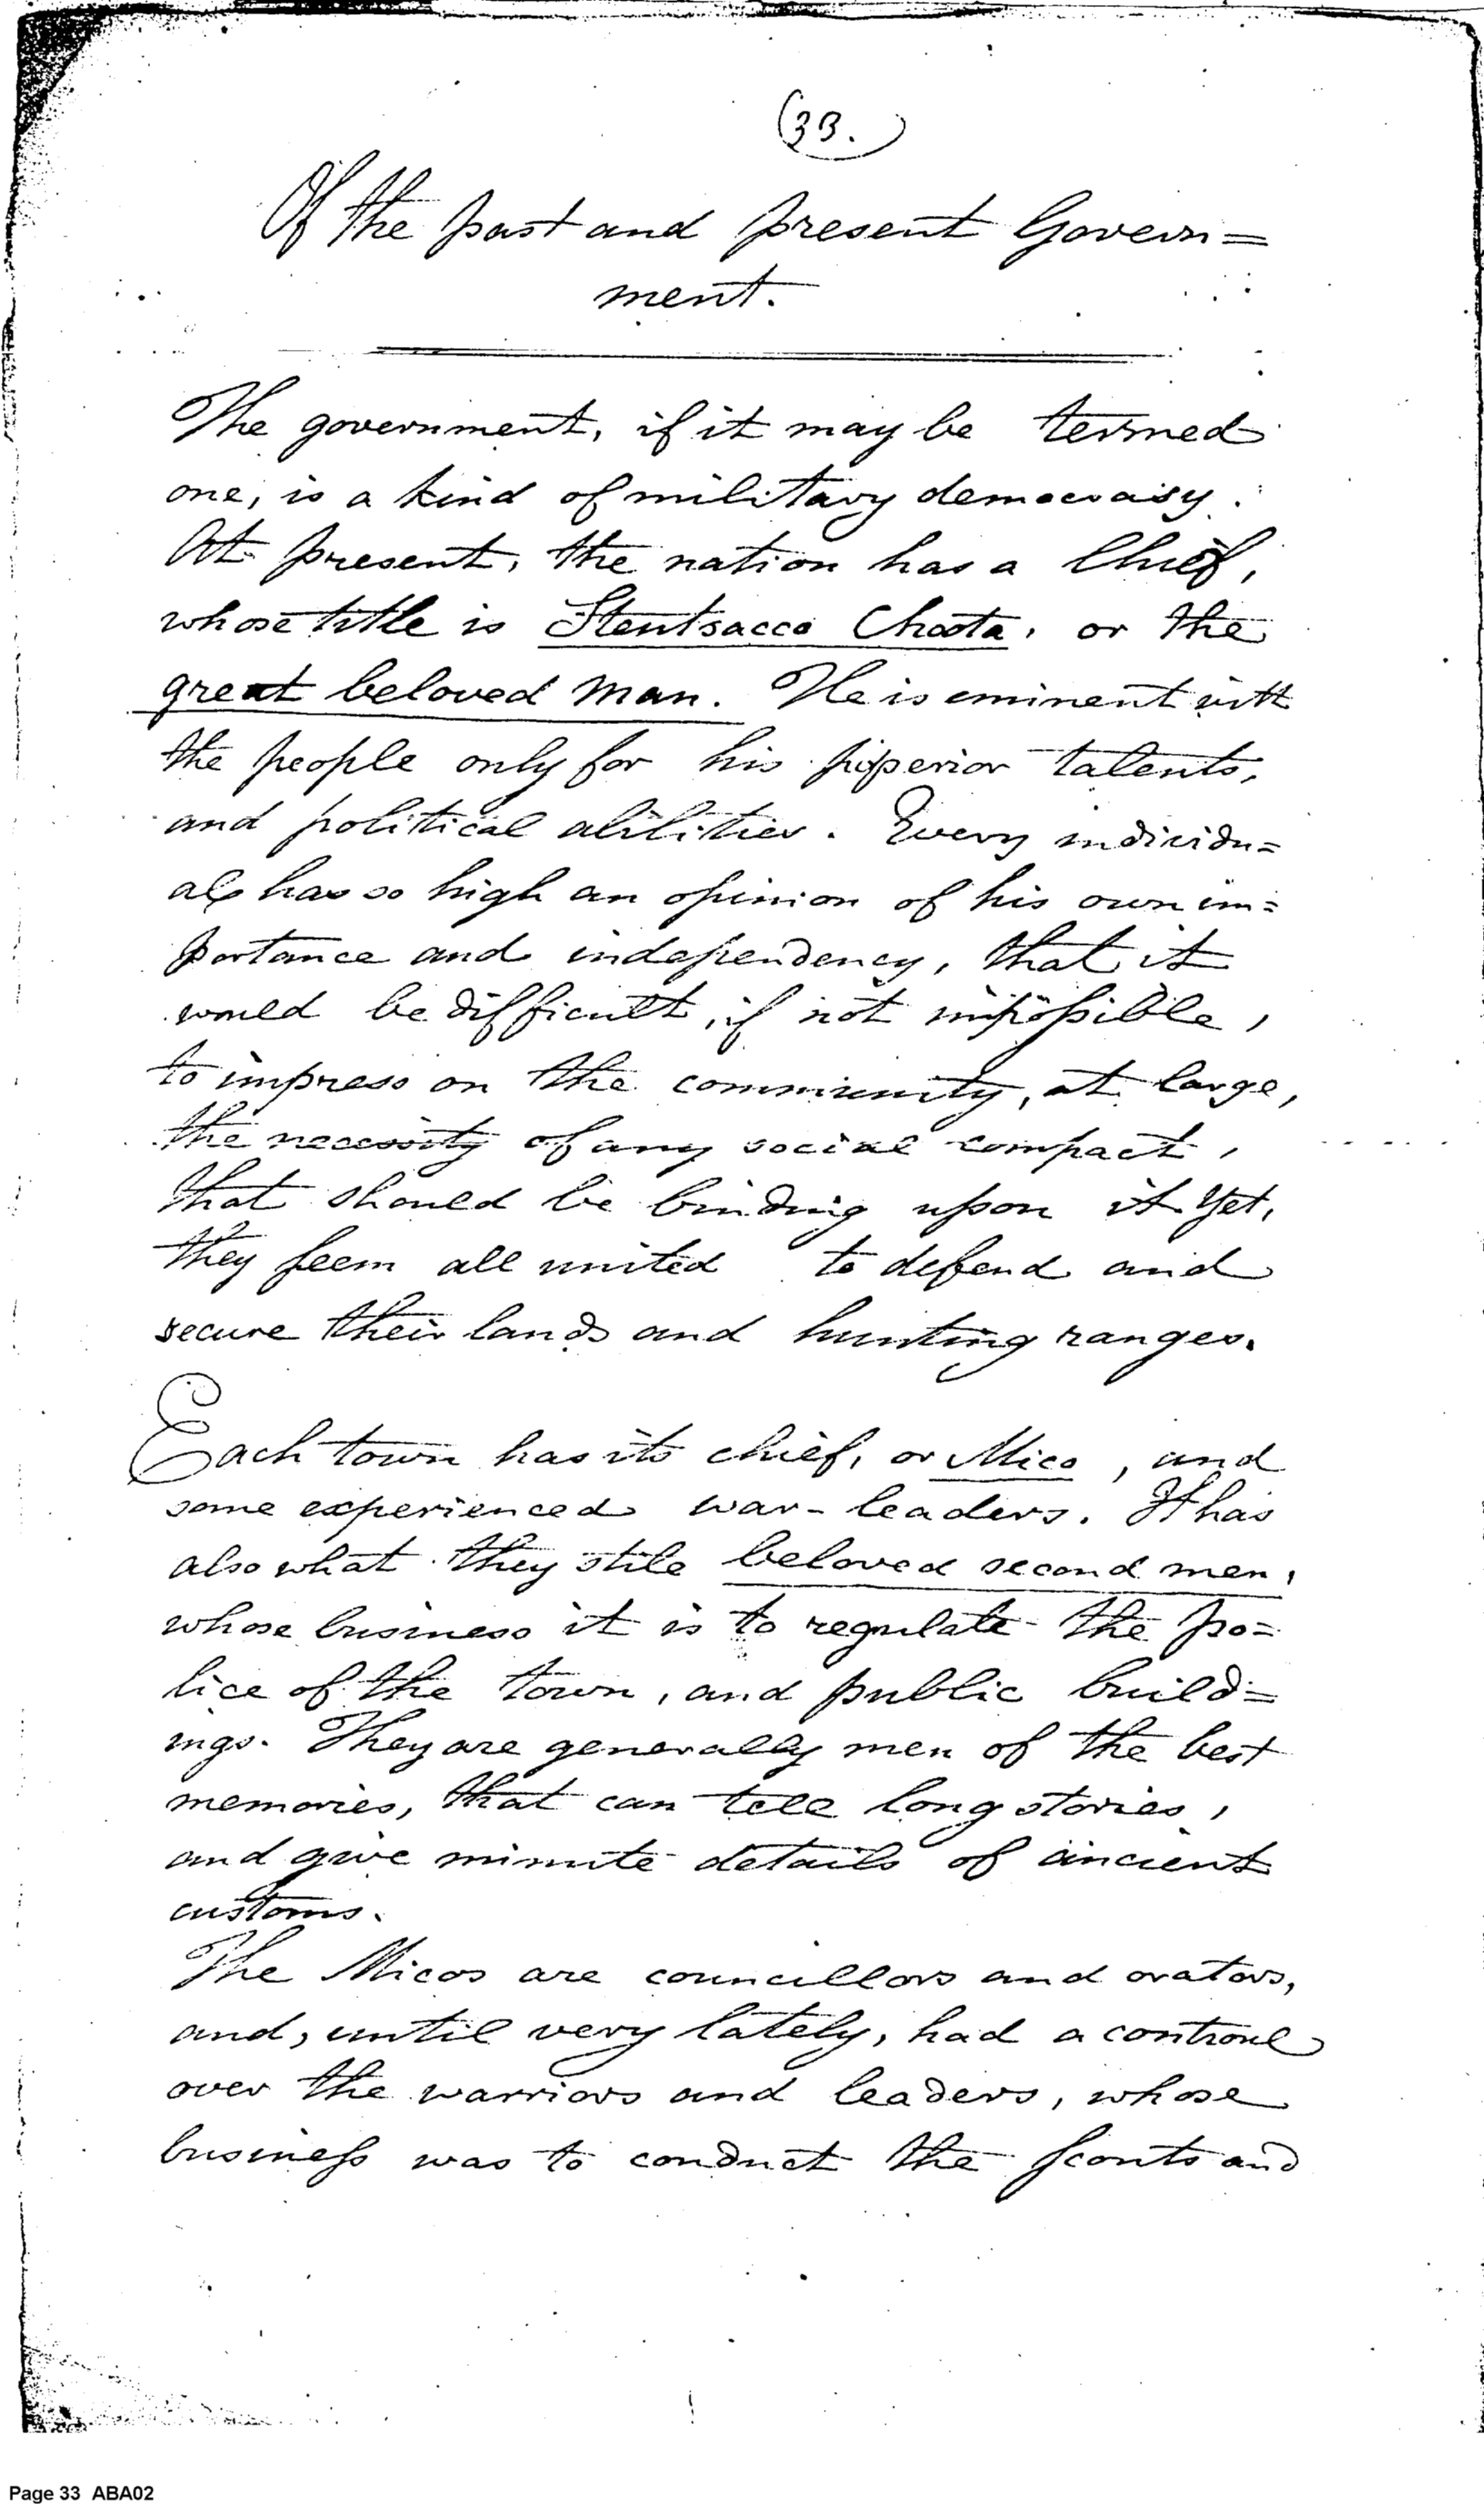 (33.)
Of the past and present Govern=
ment.
The government, if it may be termed
one, is a kind of military democrasy.
At present, the nation has a Chief,
whose title is Stentsacco Choota, or the
great beloved man. He is eminent with
the people only for his superior talents,
and political abilities. Every individu=
al has so high an opinion of his own im=
portance and independency, that it
would be difficult, if not impossible,
to impress on the community, at large,
the necessity of any social compact,
that should be binding upon it. Yet,
they seem all united to defend and
secure their lands and hunting ranges.
Each town has its chief, or Mico, and
some experienced war-leaders. It has
also what they stile beloved second men,
whose business it is to regulate the po=
lice of the town, and public build=
ings. They are generally men of the best
memories, that can tell long stories,
and give minute details of ancient
customs.
The Micos are councillors and orators,
and, until very lately, had a controul
over the warriors and leaders, whose
business was to conduct the scouts and
Page 33 ABA02